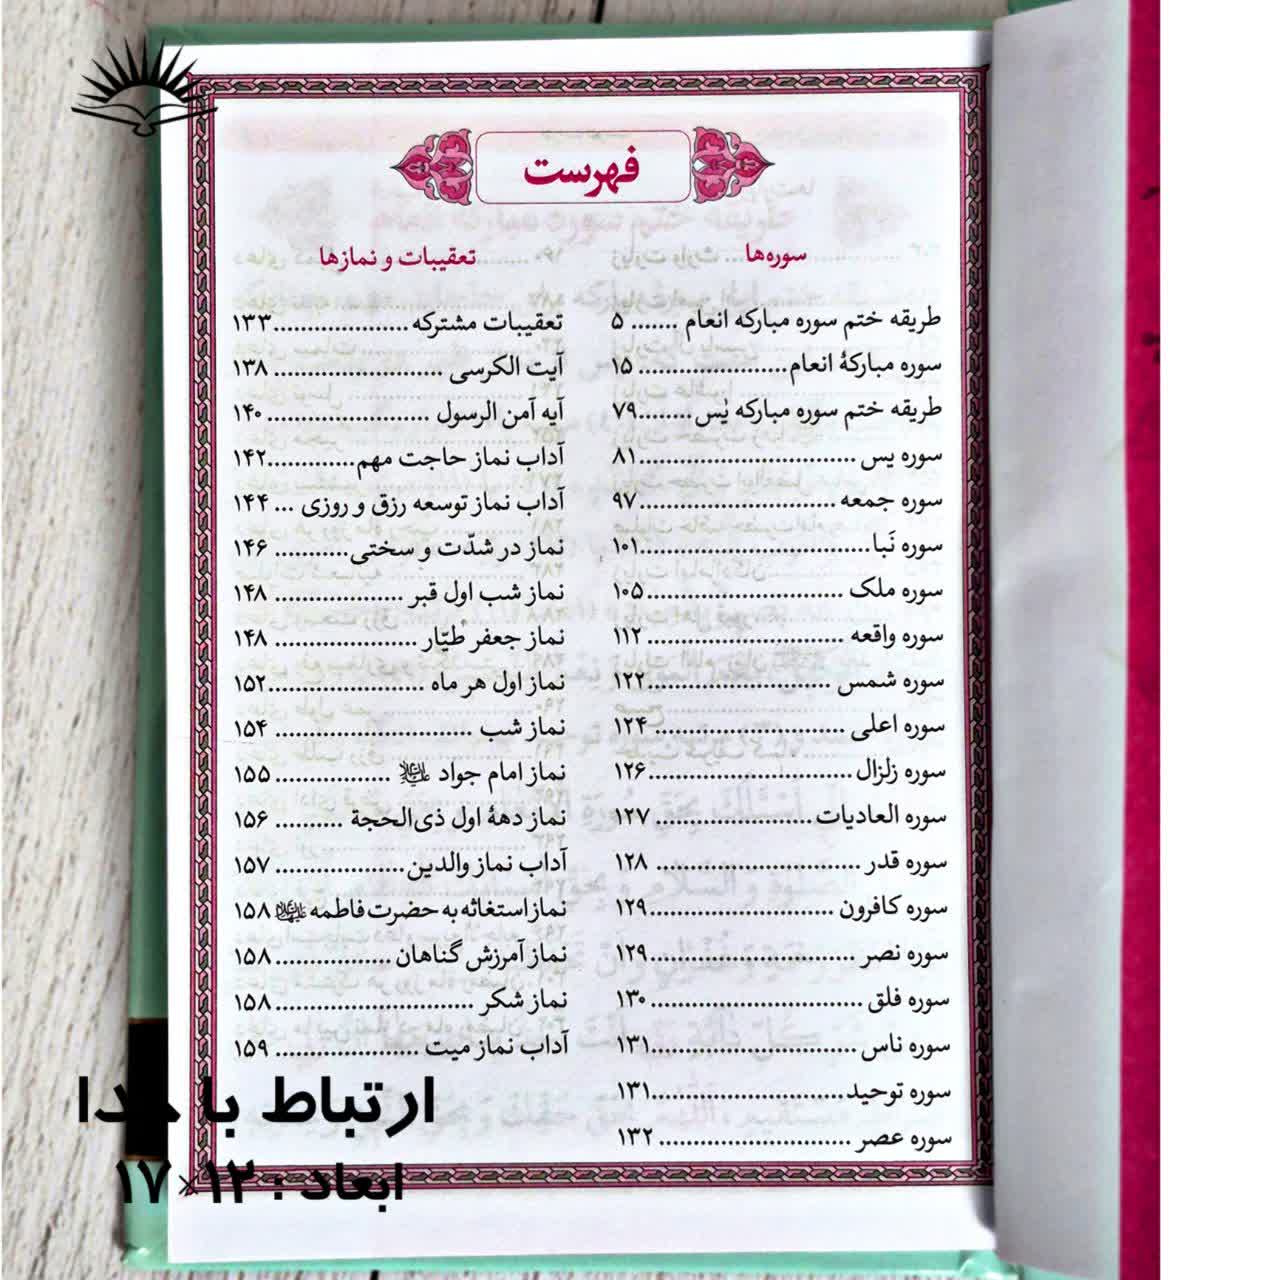 فهرست
سوره‌ها
طریقه ختم سوره مبارکه انعام ....... ۵
سوره مبارکهٔ انعام...................... ۱۵
طریقه ختم سوره مبارکه یٰس........۷۹
سوره یس ................................۸۱
سوره جمعه .............................۹۷
سوره نَبا..................................۱۰۱
سوره ملک ..............................۱۰۵
سوره واقعه ............................. ۱۱۲
سوره شمس ...........................۱۲۲
سوره اعلی ............................ ۱۲۴
سوره زلزال ..............................۱۲۶
سوره العادیات ....................... ۱۲۷
سوره قدر .............................. ۱۲۸
سوره کافرون ...........................۱۲۹
سوره نصر ..............................۱۲۹
سوره فلق ............................... ۱۳۰
سوره ناس ..............................۱۳۱
سوره توحید............................۱۳۱
سوره عصر ............................. ۱۳۲
تعقیبات و نمازها
تعقیبات مشترکه ....................۱۳۳
آیت الکرسی ......................... ۱۳۸
آیه آمن الرسول ........................ ۱۴۰
آداب نماز حاجت مهم.............۱۴۲
آداب نماز توسعه رزق و روزی ... ۱۴۴
نماز در شدّت و سختی........... ۱۴۶
نماز شب اول قبر ................... ۱۴۸
نماز جعفر طیّار ..................... ۱۴۸
نماز اول هر ماه .......................۱۵۲
نماز شب ............................. ۱۵۴
نماز امام جواد علیه‌السلام ................. ۱۵۵
نماز دههٔ اول ذی‌الحجة .......... ۱۵۶
آداب نماز والدین................... ۱۵۷
نماز استغاثه به حضرت فاطمه علیها‌السلام ۱۵۸
نماز آمرزش گناهان ................. ۱۵۸
نماز شکر ............................. ۱۵۸
آداب نماز میت ..................... ۱۵۹
ارتباط با خدا
ابعاد : ۱۲×۱۷